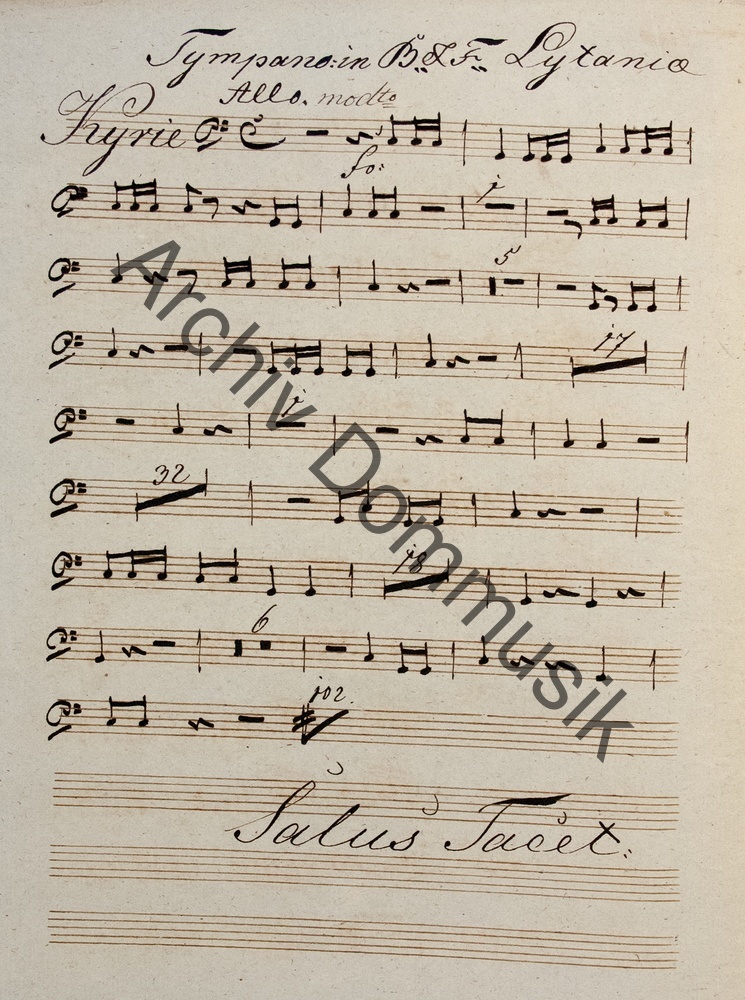 Tympano: in B. & F. Lytaniæ
Allo. modto
Kyrie
fo:
1
5
17
1
32
18
6
102.
Salus Tacet.
Archiv Dommusik